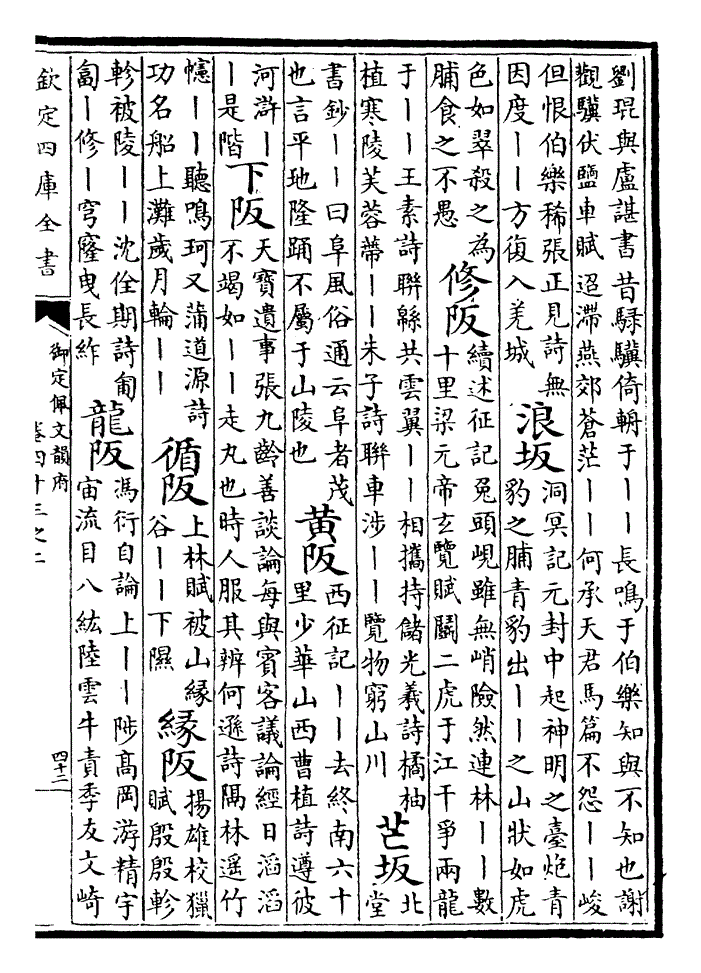 劉琨與盧諶書昔騄驥倚輈于丨丨長鳴于伯樂知與不知也謝
觀驥伏鹽車賦迢滯燕郊蒼茫丨丨何承天君馬篇不怨丨丨峻
但恨伯樂稀張正見詩無
因度丨丨方復入羌城
浪坂
洞冥記元封中起神明之臺炮青
豹之脯青豹出丨丨之山狀如虎
色如翠殺之為
脯食之不愚
修阪
續述征記兔頭峴雖無峭險然連林丨丨數
十里梁元帝玄覽賦鬭二虎于江干爭兩龍
于丨丨王素詩聯緜共雲翼丨丨相攜持儲光羲詩橘柚
植寒陵芙蓉蔕丨丨朱子詩聯車涉丨丨覽物窮山川
芒坂
北
堂
書鈔丨丨曰阜風俗通云阜者茂
也言平地隆踊不屬于山陵也
黄阪
西征記丨丨去終南六十
里少華山西曹植詩遵彼
河滸丨
丨是階
下阪
天寶遺事張九齡善談論每與賓客議論經日滔滔
不竭如丨丨走丸也時人服其辨何遜詩隔林遥竹
幰丨丨聽鳴珂又蒲道源詩
功名船上灘歲月輪丨丨
循阪
上林賦被山縁
谷丨丨下隰
縁阪
揚雄校獵
賦殷殷軫
軫被陵丨丨沈佺期詩匍
匐丨修丨穹窿曳長繂
龍阪
馮衍自論上丨丨陟高岡游精宇
宙流目八紘陸雲牛責季友文崎
欽定四庫全書
御定佩文韻府
卷四十三之二
四十二